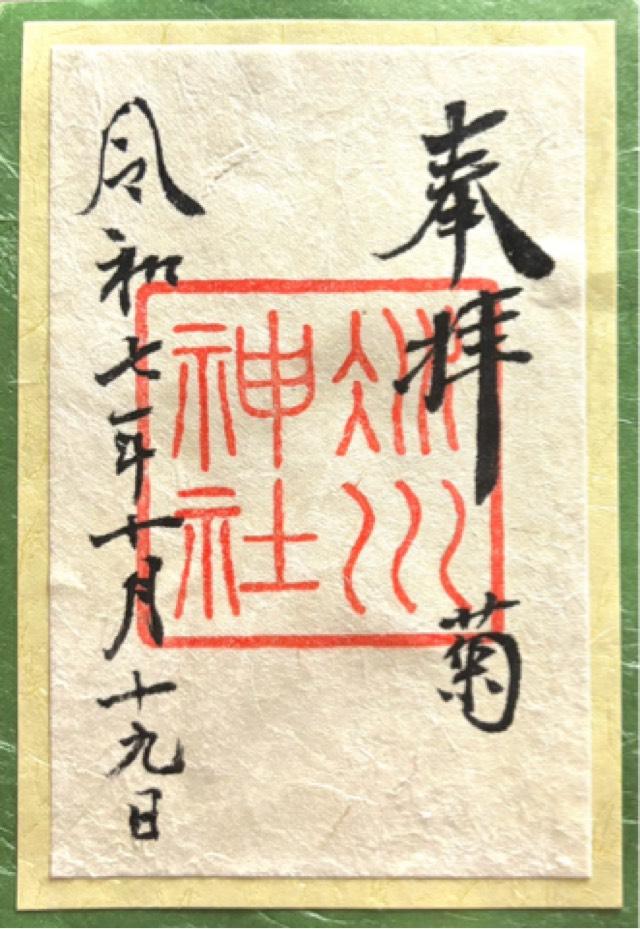 奉拝
菊
冰川
神社
令和七年十月十九日